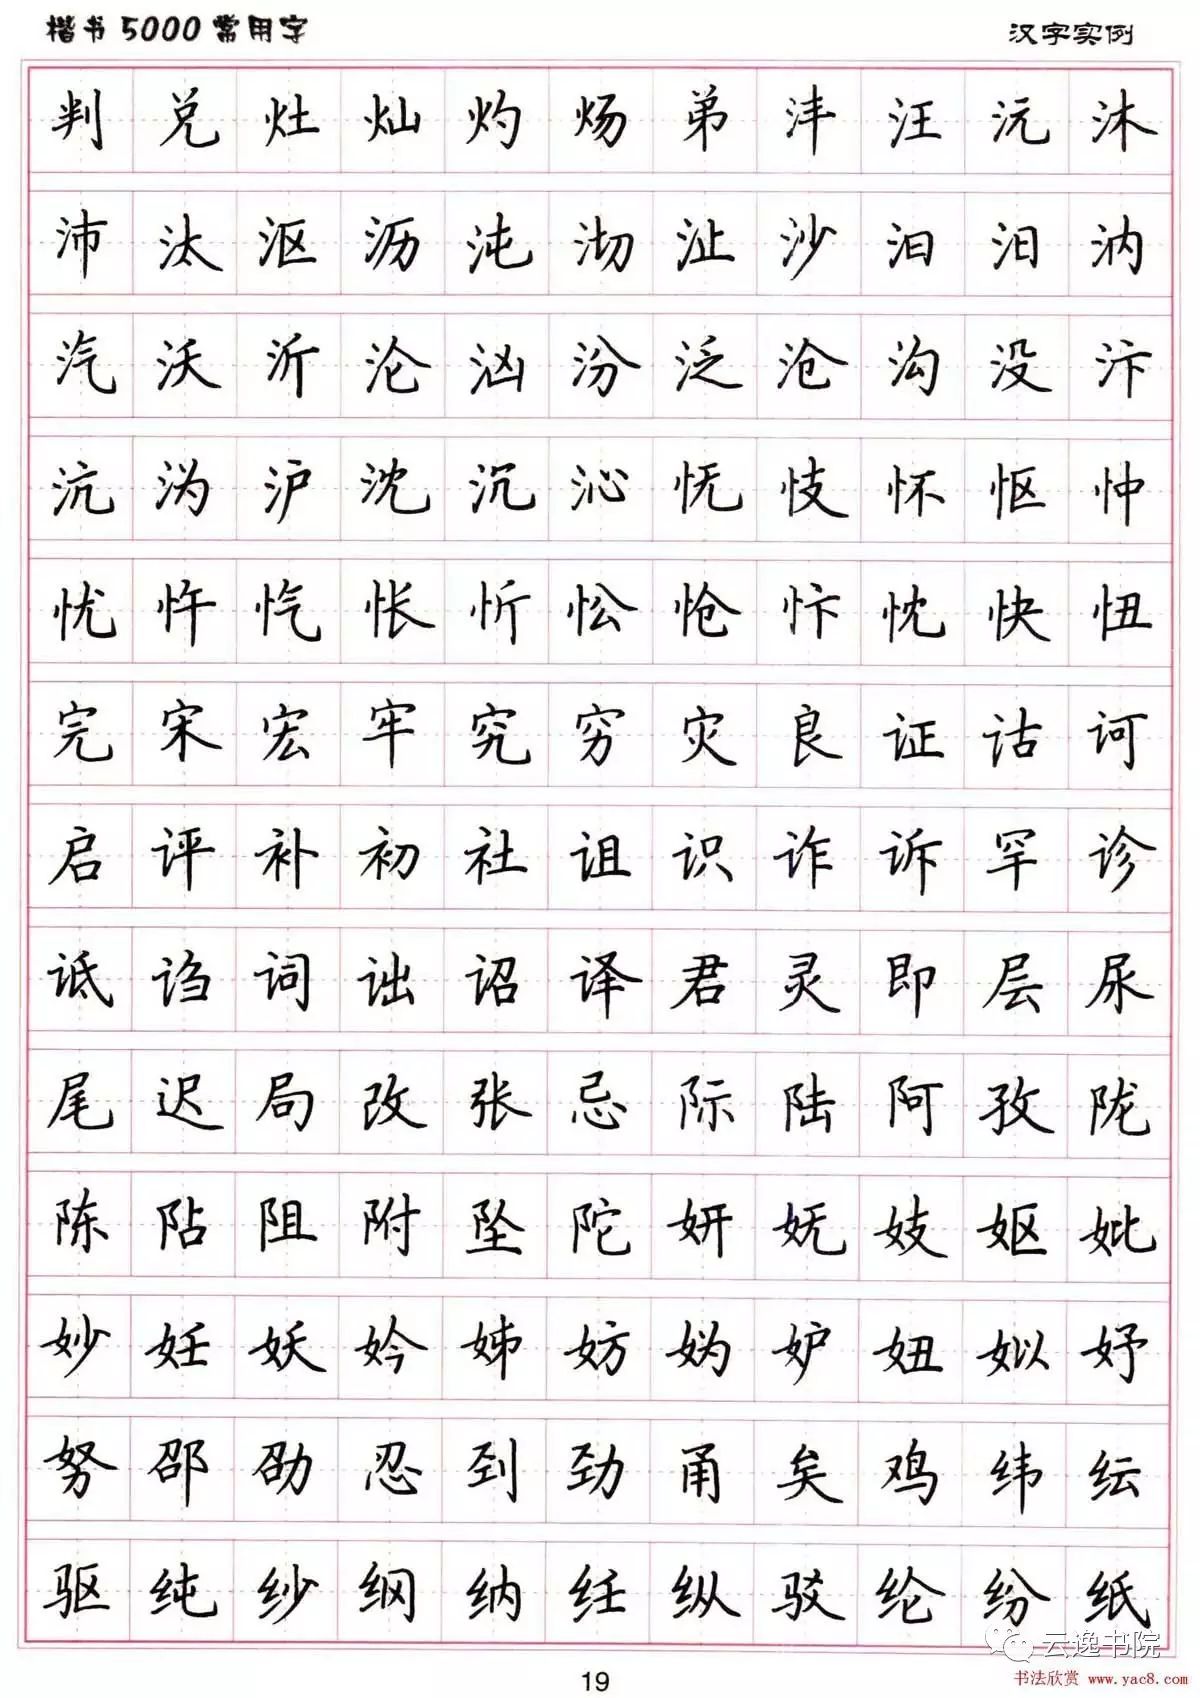 楷书5000常用字 汉字实例
判兑灶灿灼炀弟沣汪沅沐
沛汰沤沥沌沏沚沙汩汨汭
汽沃沂沦汹汾泛沧沟没汴
沆沩沪沈沉沁怃忮怀怄忡
忧忤忾怅忻忪怆忭忱快忸
完宋宏牢究穷灾良证诂诃
启评补初社诅识诈诉罕诊
诋诌词诎诏译君灵即层尿
尾迟局改张忌际陆阿孜陇
陈阽阻附坠陀妍妩妓妪妣
妙妊妖妗姊妨妫妒妞姒妤
努邵劭忍刭劲甬矣鸡纬纭
驱纯纱纲纳纴纵驳纶纷纸
云逸书院
19
书法欣赏 www.yac8.com